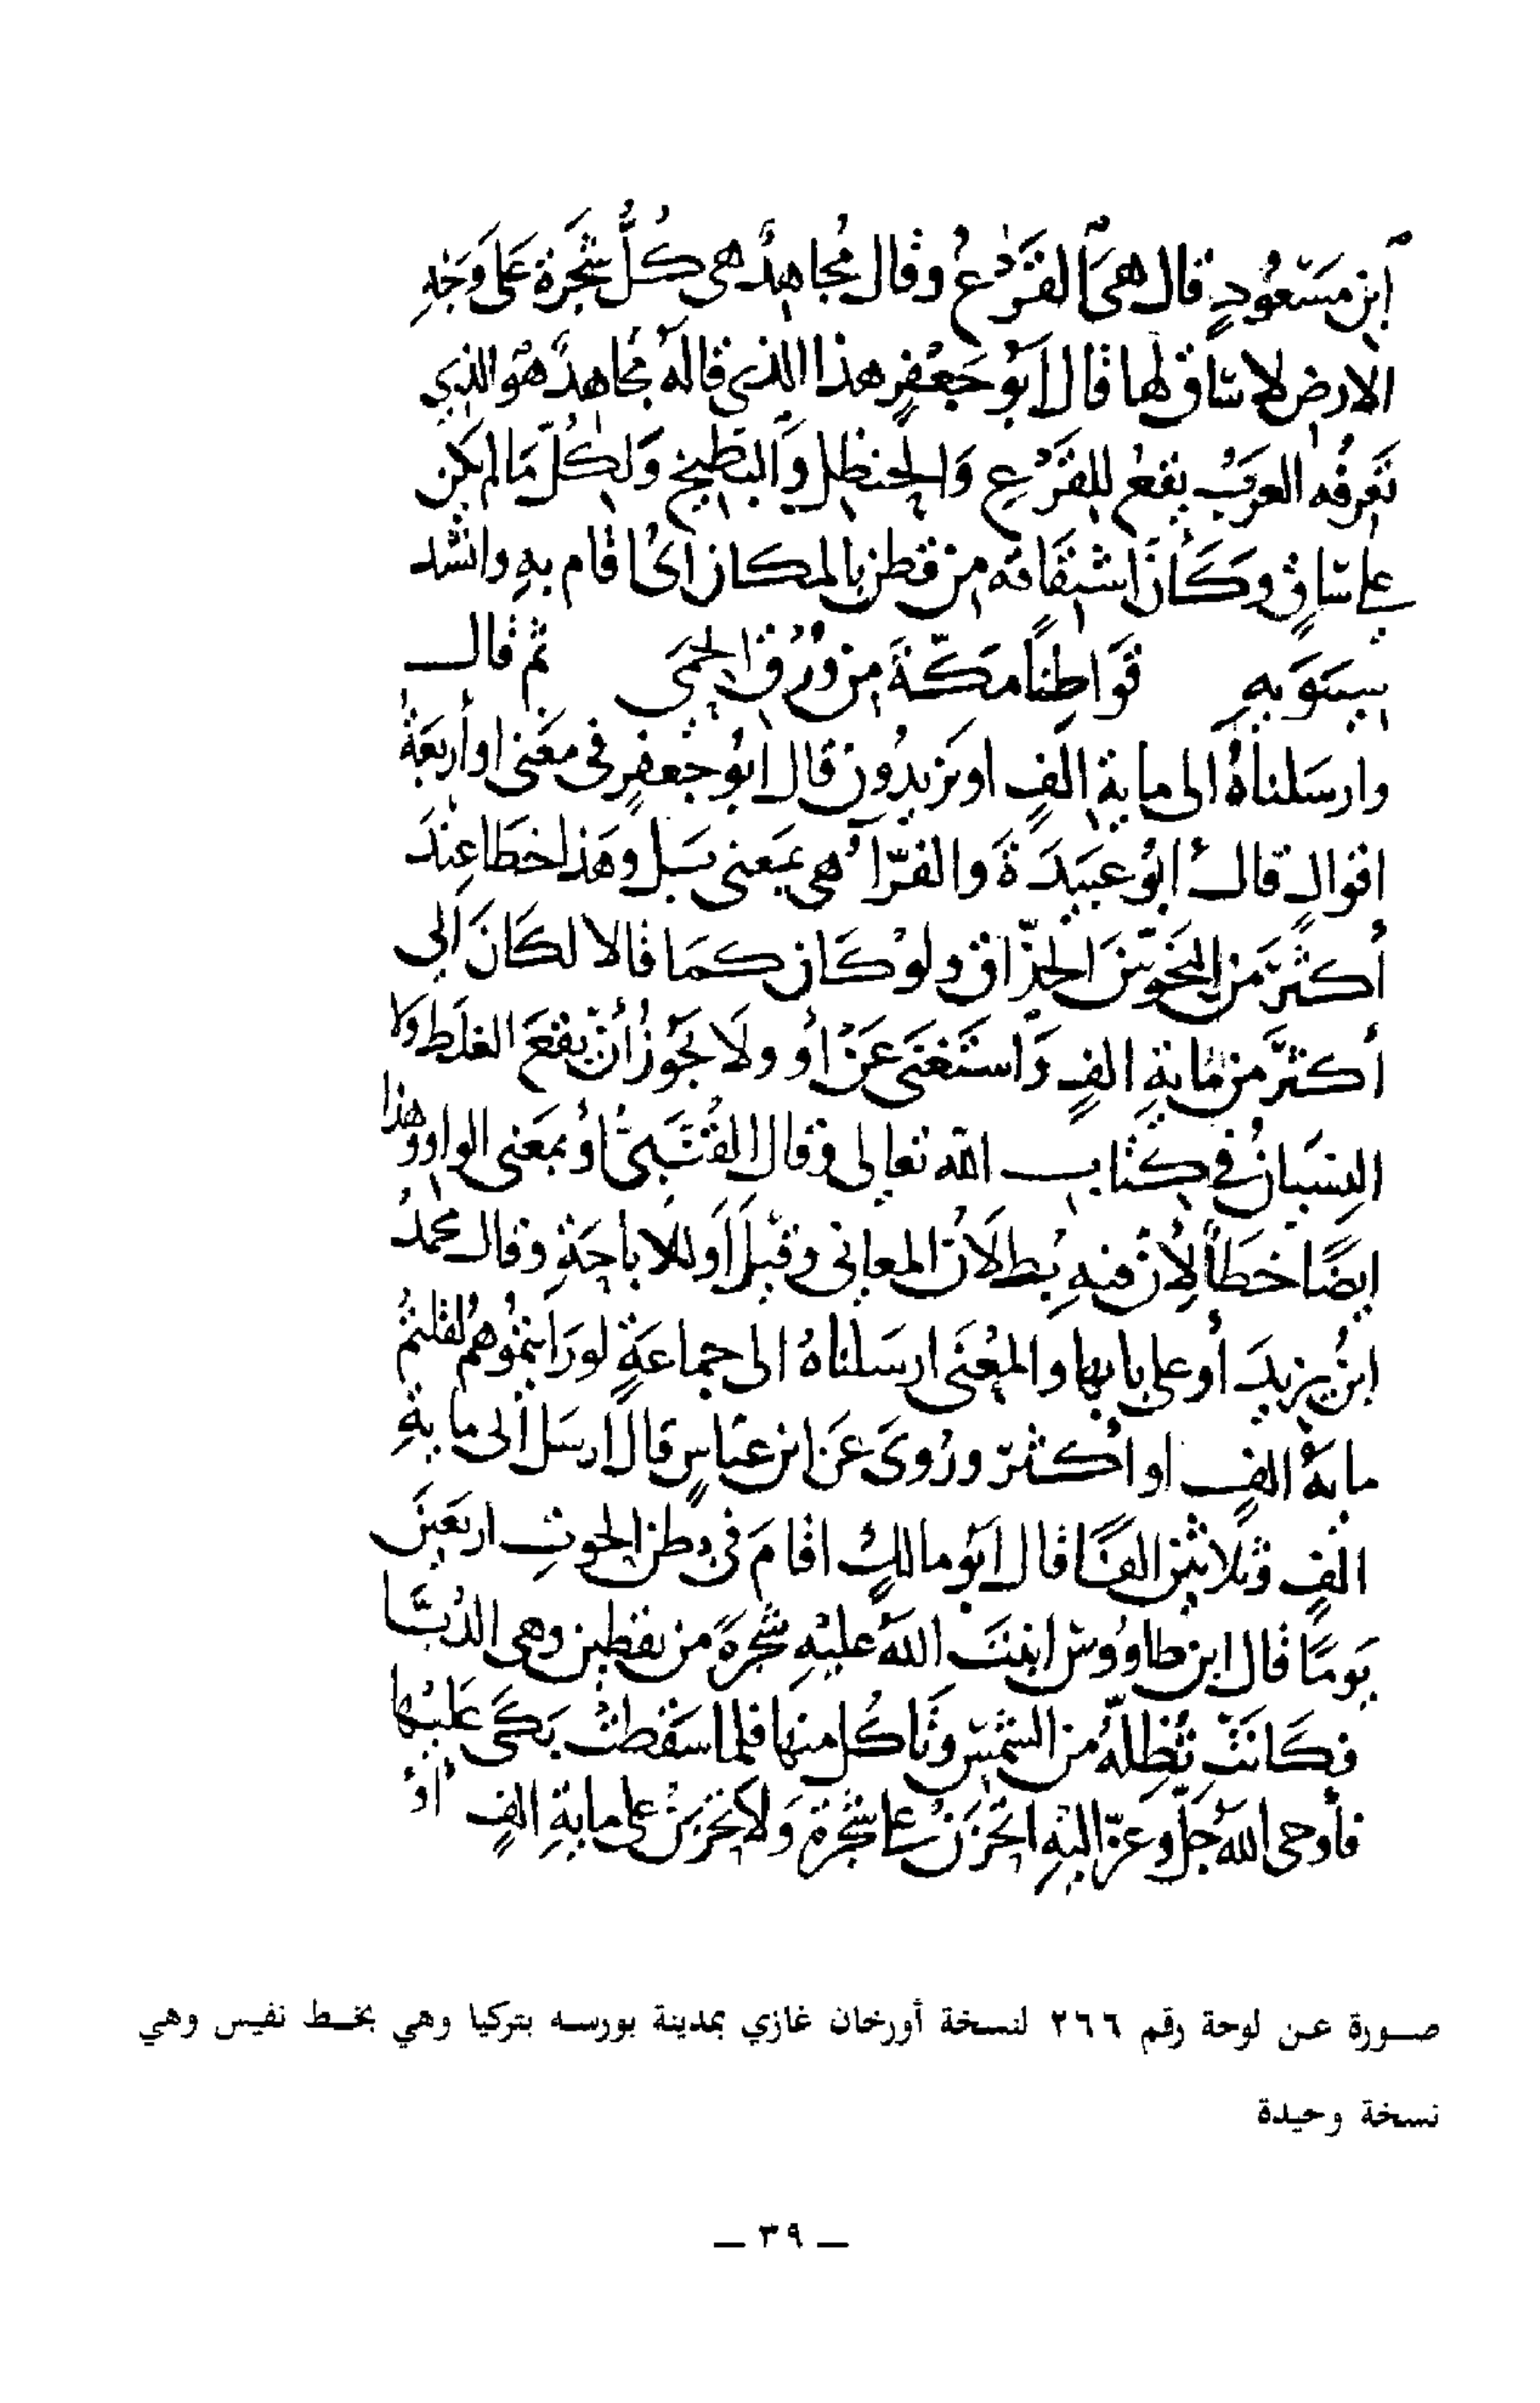 ابن مَسْعُودٍ قال هىَ القَرْعُ وقال مُجاهِدٌ هى كُلُّ شَجَرة عَلَى وَجْهِ
الارض لا ساق لها قال أبو جَعْفرٍ هذا الذى قالَهُ مجاهدٌ هُوَ الذِي
تَعْرِفُه العرَبُ يقعُ للقَرْعِ وَالحنظلِ وَالبطيخِ وَلكلّ مَا لم يكن
على ساقٍ وكَأنّ اشتِقَاقه مِنْ قطن بالمكان أىْ اقام بهِ وانشد
سيبَوَيهِ قَوَاطِنًا مَكّةَ مِن وُرْقِ الحَمِي ثم قال
وارسَلناهُ الى ماية الفٍ او يَزيدُون قال أبُو جَعفرٍ فى مَعْنى او أربَعَةُ
اقوالٍ قالَ ابُو عبَيدَةَ والفرّآءُ هى بمَعنى بَل وهَذا خطَا عِندَ
أكثَرَ مِن النَحْويّينَ الحذّاق ولوْ كَان كمَا قالا لكَانَ الى
أكثَرَ من مَايةِ الفٍ وَاستَغنَى عَنْ أو ولَا يَجُوزُ أنْ يقعَ الغلَط ولا
النِسَيانُ فى كتاب الله تعالى وقال القُتَبِىُّ أوْ بمَعنى الواو وهذا
ايضًا خطَأ لِأنّ فيهِ بُطلَانَ المعانى وقيلَ أو للاباحَةِ وقال محمدُ
ابنُ يزيدَ أو على بابها والمعْنَى ارسَلناهُ الى جماعَةٍ لو رَايتمُوهُم لقلتمُ
مايةُ الفٍ او أكثرَ ورُوىَ عَن ابن عبَّاسٍ قال ارسَل الى مايةِ
الفٍ وثلاثين الفًا قال ابُو مالكٍ اقامَ فى بطن الحوتِ اربَعينَ
يَومًا قال ابن طاووُس انبتَ اللهُ عليْهِ شجرَةً من يقطين وهى الدُبّا
فكَانَتْ تُظِلّهُ مِنَ الشمْسِ وَيَاكُل منها فلما سَقَطتْ بَكَى عَليْها
فأوحى اللهُ جلّ وعزّ اليْهِ اتَحْزَنُ على شَجَرة وَلَا تَحْزَنُ على مايةِ الفٍ أوْ
صورة عن لوحة رقم ٢٦٦ لنسخة أورخان غازي بمدينة بورسه بتركيا وهي بخط نفيس وهي
نسخة وحيدة
— ٣٩ —